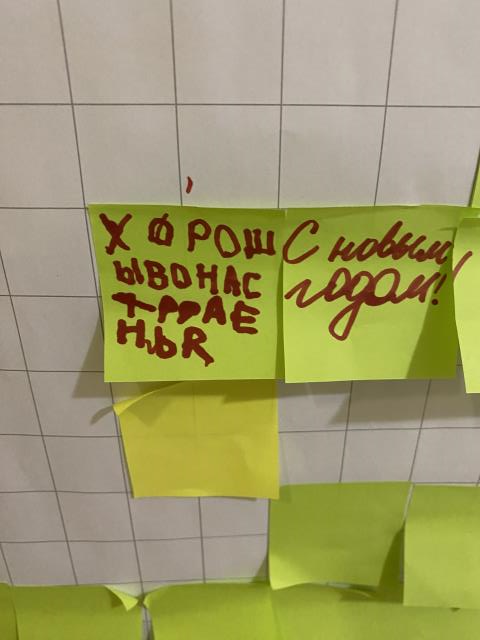 ХОРОШ
ЫВОНАС
ТРРАЕ
НЬЯ
С новым
годом!